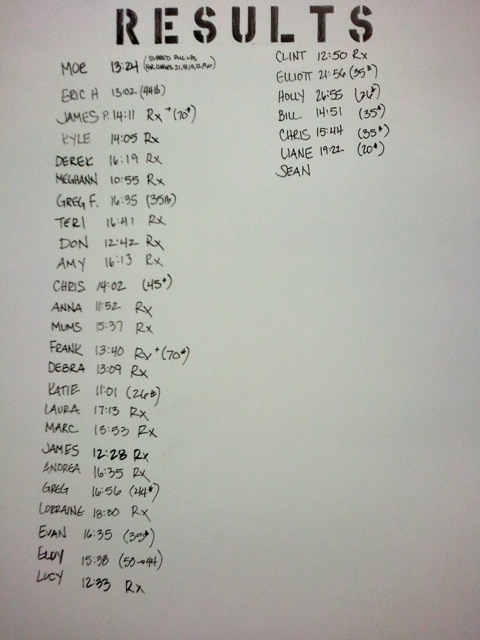 RESULTS
MOE 13:24 (SUBBED PULL-UPS
ERIC H 13:02 (44lb)
JAMES P. 14:11 Rx + (70#)
KYLE 14:05 Rx
DEREK 16:19 Rx
MEGHANN 10:55 Rx
GREG F. 16:35 (35lb)
TERI 16:41 Rx
DON 12:42 Rx
AMY 16:13 Rx
CHRIS 14:02 (45#)
ANNA 11:52 Rx
MUMS 15:37 Rx
FRANK 13:40 Rx + (70#)
DEBRA 13:09 Rx
KATIE 11:01 (26#)
LAURA 17:13 Rx
MARC 15:53 Rx
JAMES 12:28 Rx
ANDREA 16:35 Rx
GREG 16:56 (44#)
LORRAINE 18:30 Rx
EVAN 16:35 (35#)
ELOY 15:38 (53→44)
LUCY 12:33 Rx
CLINT 12:50 Rx
ELLIOTT 21:56 (35#)
HOLLY 26:55 (26#)
BILL 14:51 (35#)
CHRIS 15:44 (35#)
LIANE 19:22 (20#)
SEAN